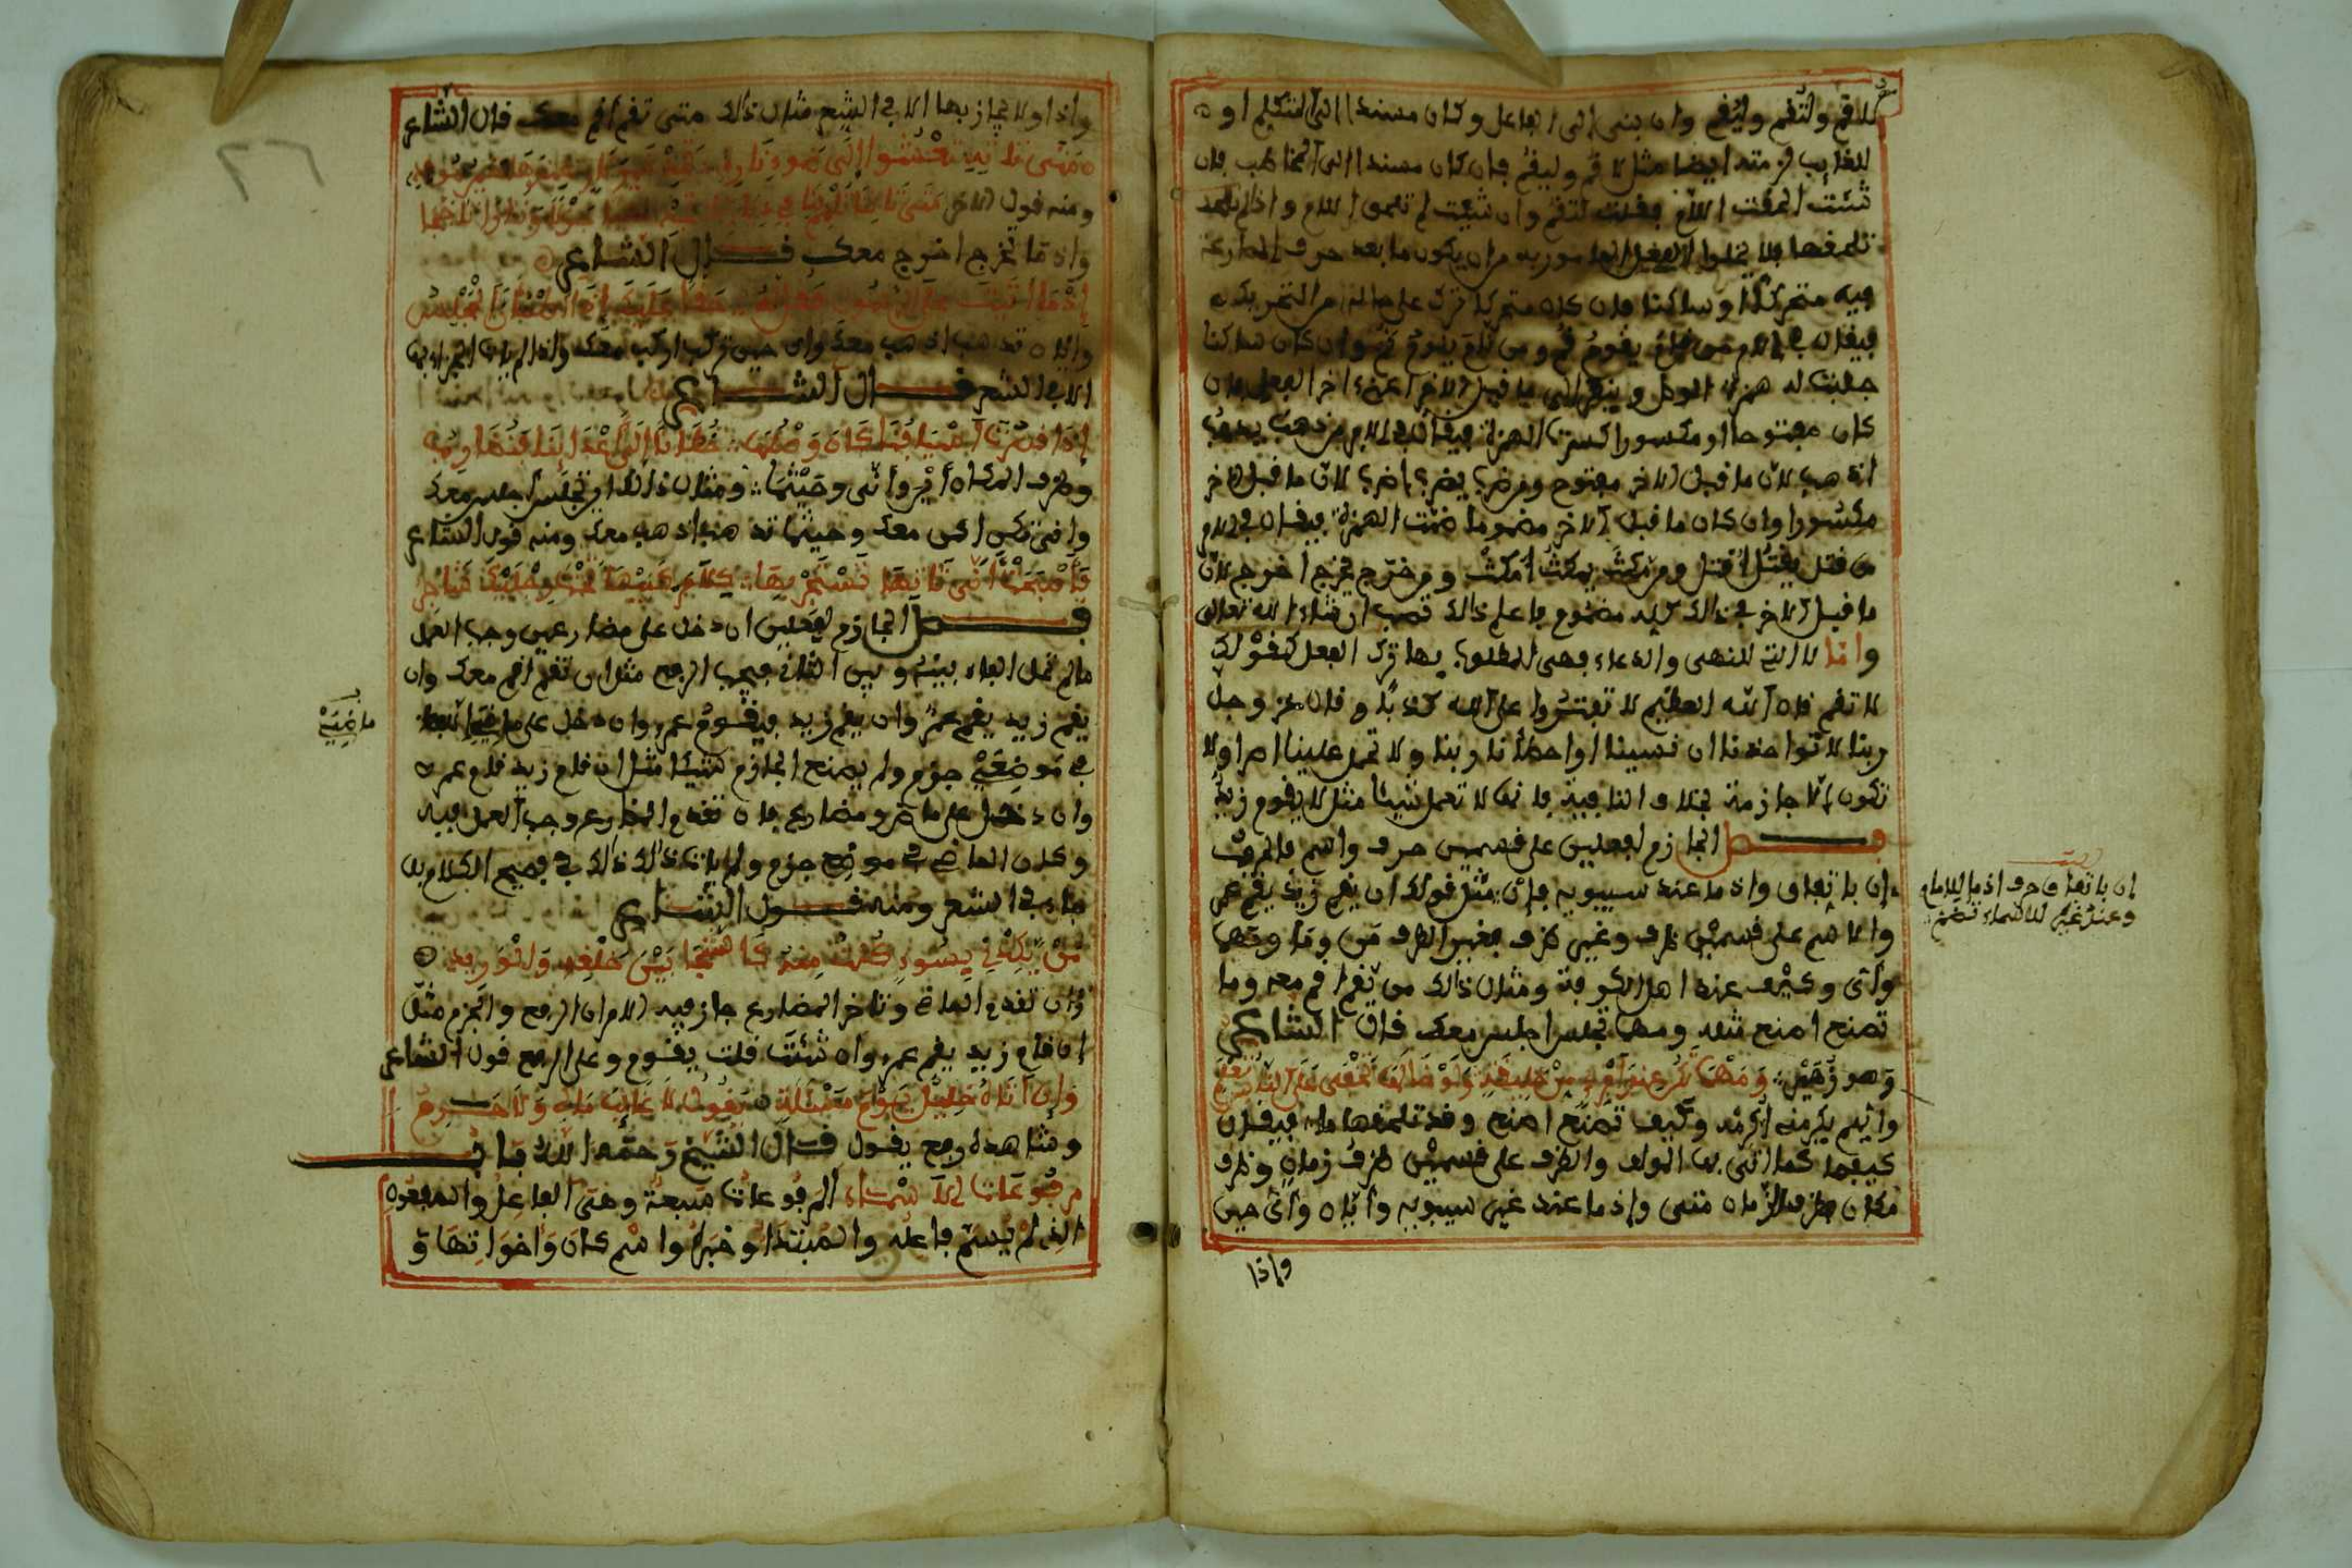 للاقم ولتقم وليقم وان بني الى الفاعل وكان مسندا الى المتكلم او
للغايب لزمته ايضا مثل لاقم وليقم فان كان مسندا الى المخاطب فان
شئت الحقت اللام فقلت لتقم وان شئت لم تلحق اللام واذا لم
تلحقها فلا يخلوا الفعل المامور به من ان يكون ما بعد حرف المضارعة
فيه متحركا او ساكنا فان كان متحركا ترك على حاله من التحريك
فيقال في الامر من قام يقوم قم ومن يقوم قم وان كان ساكنا
جلبت له همزة الوصل وينظر الى ما قبل الاخر اعني اخر الفعل فان
كان مفتوحا او مكسورا كسرت الهمزة فيقال في الامر من ذهب يذهب
اذهب لان ما قبل الاخر مفتوح ومن ضرب يضرب اضرب لان ما قبل الاخر
مكسورا وان كان ما قبل الاخر مضموما ضمت الهمزة فيقال في الامر
من قتل يقتل اقتل ومن مكث يمكث امكث ومن خرج يخرج اخرج لان
ما قبل الاخر في ذالك كله مضموم فاعلم ذالك تصب ان شاء الله تعالى
واما لا التي للنهي والدعاء فهي المطلوب بها ترك الفعل كقولك
لا تقم قال الله العظيم لا تفتروا على الله كذبا وقال عز وجل
ربنا لا تواخذنا ان نسينا او اخطأنا ربنا ولا تحمل علينا اصرا ولا
تكون الا جازمة بخلاف النافية فانها لا تعمل شيئا مثل لا يقوم زيد
فصل الجازم لفعلين على قسمين حرف واسم فالحرف
ان باتفاق واذ ما عند سيبويه فان مثل قولك ان يقم زيد يقم عمر
والاسم على قسمين ظرف وغير ظرف فغير الظرف من وما ومهما
واي وكيف عند اهل الكوفة ومثال ذالك من يقم اقم معه وما
تصنع اصنع مثله ومهما تجلس اجلس معك قال الشاعر
وهو زهير ومهما تكن عند امرء من خليقة ولو خالها تخفى على الناس تعلم
وايهم يكرمني اكرمه وكيف تصنع اصنع وقد تلحقها ما فيقال
كيفما كما اتى بها المولف والظرف على قسمين ظرف زمان وظرف
مكان فظرف الزمان متى واذ ما عند غير سيبويه وايان واي حين
واذا
ان باتفاق حرف اذ ما للامام
وعند غيره للاسماء تضم
واذا ولا يجازى بها الا في الشعر مثال ذالك متى تقم اقم معك قال الشاعر
ومنه قول الاخر متى تاتنا تلمم بنا في ديارنا
واذ ما تخرج اخرج معك قال الشاعر
اذ ما اتيت على الرسول فقل له حقا عليك اذا اطمأن المجلس
وايان تذهب اذهب معك واي حين تركب اركب معك
الا في الشعر قال الشاعر
اذا قصرت اسيافنا كان وصلها خطانا الى اعدائنا فنضارب
وظرف المكان اين وانى وحيثما ومثال ذالك اين تجلس اجلس معك
وانى تكن اكن معك وحيثما تذهب اذهب معك ومنه قول الشاعر
فاصبحت انى تاتها تستجر بها
فصل الجازم لفعلين ان دخل على مضارعين وجب العمل
ما لم تحل الفاء بينه وبين الثاني فيجب الرفع مثل ان تقم اقم معك وان
يقم زيد يقم عمر وان يقم زيد فيقوم عمر وان دخل على ماضيين
في موضعي جزم ولم يصنع الجازم شيئا مثل ان قام زيد قام عمر
وان دخل على ماض ومضارع فان تقدم المضارع وجب العمل فيه
وكان الماضي في موضع جزم ولم يات ذالك في فصيح الكلام بل
جاء في الشعر ومنه قول الشاعر
من يكدني بسوء كنت منه كالشجا بين حلقه والوريد
وان تقدم الماضي وتاخر المضارع جاز فيه الامران الرفع والجزم مثل
ان قام زيد يقم عمر وان شئت قلت يقوم وعلى الرفع قول الشاعر
وان اتاه خليل يوم مسئلة يقول لا غايب مالي ولا حرم
وشاهده رفع يقول قال الشيخ رحمه الله باب
مرفوعات الاسماء المرفوعات سبعة وهي الفاعل والمفعول
الذي لم يسم فاعله والمبتدا وخبره واسم كان واخواتها و
ماضيين